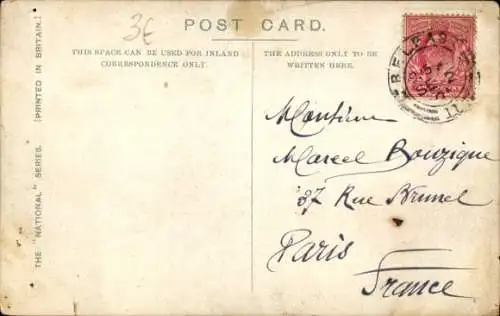 3€
POST CARD.
THIS SPACE CAN BE USED FOR INLAND
CORRESPONDENCE ONLY.
THE ADDRESS ONLY TO BE
WRITTEN HERE.
THE "NATIONAL" SERIES. [PRINTED IN BRITAIN.]
BELFAST
Monsieur
Marcel Bouzique
37 Rue Brunel
Paris
France